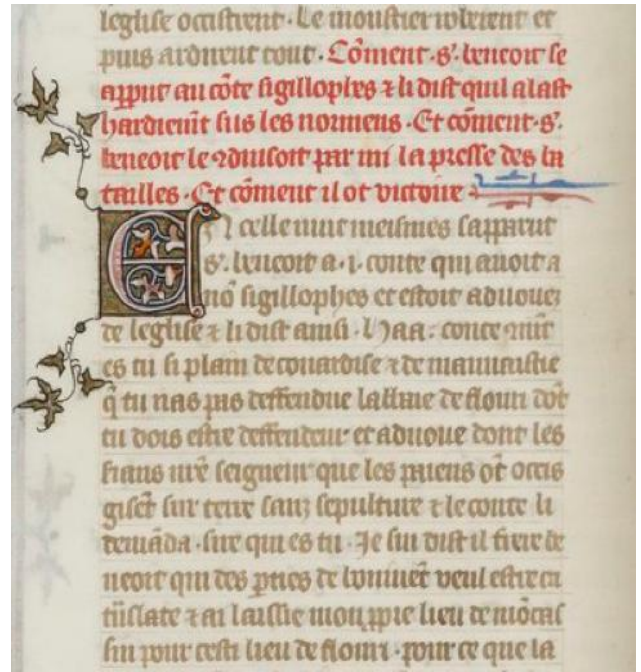 leglise occistrent · Le moustier roberent et
puis ardirent tout · Cõment · s̃ · benoit se
apput au cõte sigillophes ⁊ li dist quil alast
hardiemt̃ sus les normens · Et cõment · s̃ ·
beneoit le ꝯduisoit par mi la presse des ba
tailles · Et cõment il ot victoire
En celle nuit meismes sapparut
s̃ · beneoit a · i · conte qui auoit a
nõ sigillophes et estoit aduouez
de leglise ⁊ li dist ainsi · Haa : conte
es tu si plain de couardise ⁊ de mauuaistie
q̃ tu nas pas deffendue labbaie de flouri dõt
tu dois estre deffendeur et aduoue dont les
frans nr̃e seigneur que les paiens õt occis
gisẽt sur terre sanz sepulture ⁊ le conte li
demãda · sire qui es tu · Je sui dist il frere be
neoit qui des pties de bouniuẽt veul estre ca
tr̃slate ⁊ ai laissie mon ppre lieu de mõt cas
sin pour cesti lieu de flouri · pour ce que la